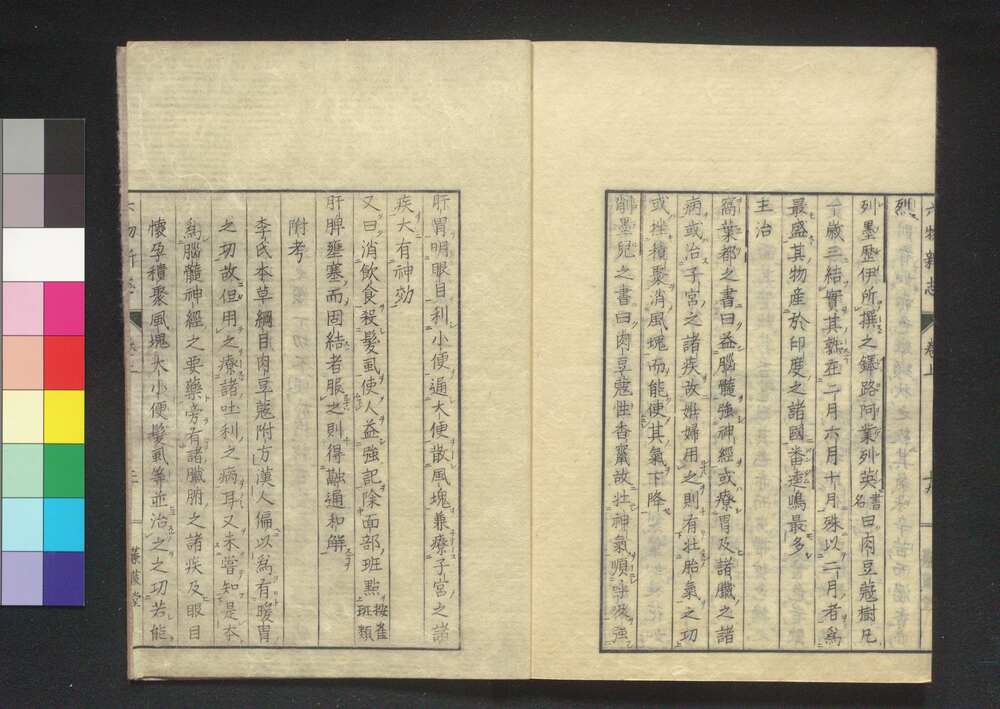 六物新志 卷上
烈
列墨歴伊所撰之鐸路阿業列英書名曰肉豆蔻樹凡
一歳三結實其熟在二月六月十月殊以二月者爲
最盛其物産於印度之諸國番達嶋最多
主治
窩葉都之書曰益腦髓強神經或療胃及諸臟之諸
病或治子宮之諸疾故姙婦用之則有牡胎氣之功
或挫積聚消風塊而能使其氣下降
削墨兒之書曰肉豆蔻性香竄故壯神氣順呼吸強
肝胃明眼目利小便通大便散風塊兼療子宮之諸
疾大有神効
又曰消飲食殺髮虱使人益強記除面部班點按雀班類
肝脾壅塞而固結者服之則得融通和解
附考
李氏本草綱目肉豆蔻附方漢人偏以爲有暖胃
之功故但用之療諸吐利之病耳又未嘗知是本
爲腦髓神經之要藥旁有諸臟腑之諸疾及眼目
懷孕積聚風塊大小便髮虱等並治之之功若能
蒹葭堂